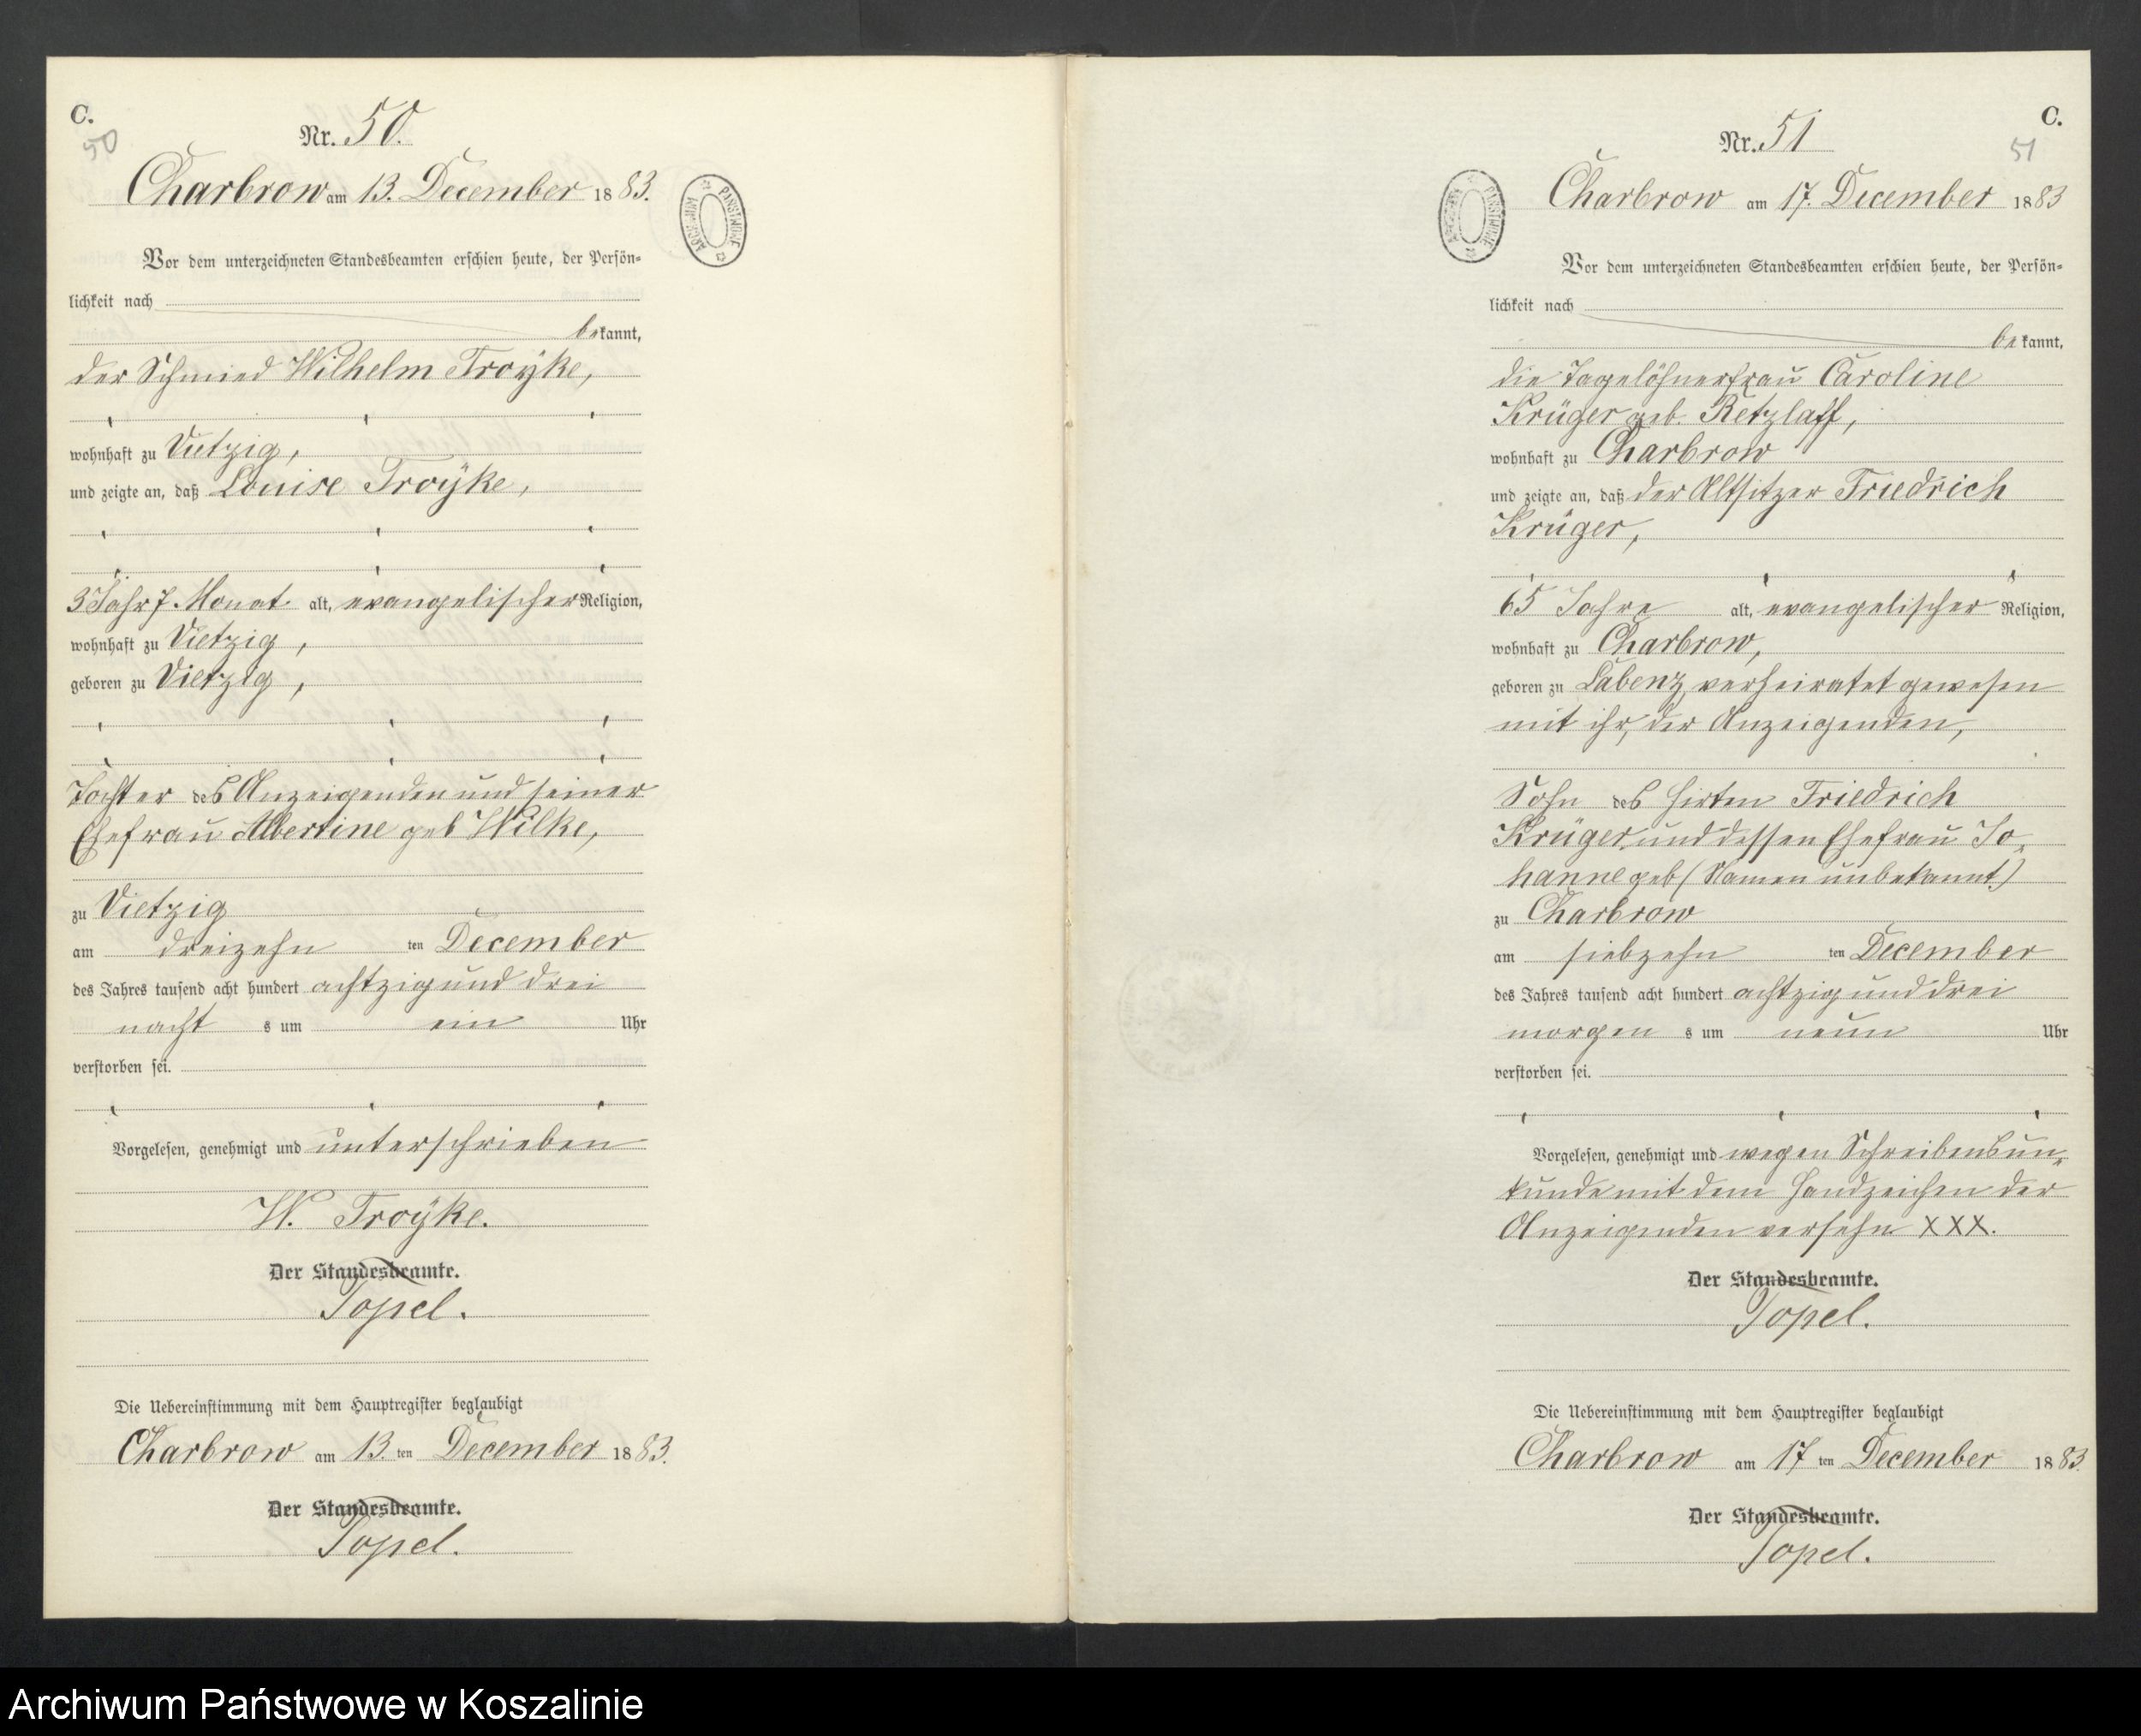 C.
50
Nr. 50.
Charbrow am 13. December 1883.
Vor dem unterzeichneten Standesbeamten erschien heute, der Persön-
lichkeit nach
bekannt,
der Schmied Wilhelm Troÿke,
wohnhaft zu Vietzig,
und zeigte an, daß Louise Troÿke,
3 Jahr 7 Monat alt, evangelischer Religion,
wohnhaft zu Vietzig,
geboren zu Vietzig,
Tochter des Anzeigenden und seiner
Ehefrau Albertine geb Wilke,
zu Vietzig
am dreizehn ten December
des Jahres tausend acht hundert achtzig und drei
nacht s um ein Uhr
verstorben sei.
Vorgelesen, genehmigt und unterschrieben
W. Troÿke.
Der Standesbeamte.
Topel.
Die Uebereinstimmung mit dem Hauptregister beglaubigt
Charbrow am 13. ten December 1883.
Der Standesbeamte.
Topel.
ARCHIWUM PAŃSTWOWE
C.
51
Nr. 51
Charbrow am 17. December 1883
ARCHIWUM PAŃSTWOWE
Vor dem unterzeichneten Standesbeamten erschien heute, der Persön-
lichkeit nach
bekannt,
die Tagelöhnerfrau Caroline
Krüger geb. Retzlaff,
wohnhaft zu Charbrow
und zeigte an, daß der Altsitzer Friedrich
Krüger,
65 Jahre alt, evangelischer Religion,
wohnhaft zu Charbrow,
geboren zu Labenz, verheiratet gewesen
mit ihr, der Anzeigenden,
Sohn des Hirten Friedrich
Krüger und dessen Ehefrau Jo-
hanne geb (Namen unbekannt)
zu Charbrow
am siebzehn ten December
des Jahres tausend acht hundert achtzig und drei
morgen s um neun Uhr
verstorben sei.
Vorgelesen, genehmigt und wegen Schreibensun-
kunde mit dem Handzeichen der
Anzeigenden versehn XXX.
Der Standesbeamte.
Topel.
Die Uebereinstimmung mit dem Hauptregister beglaubigt
Charbrow am 17 ten December 1883.
Der Standesbeamte.
Topel.
Archiwum Państwowe w Koszalinie